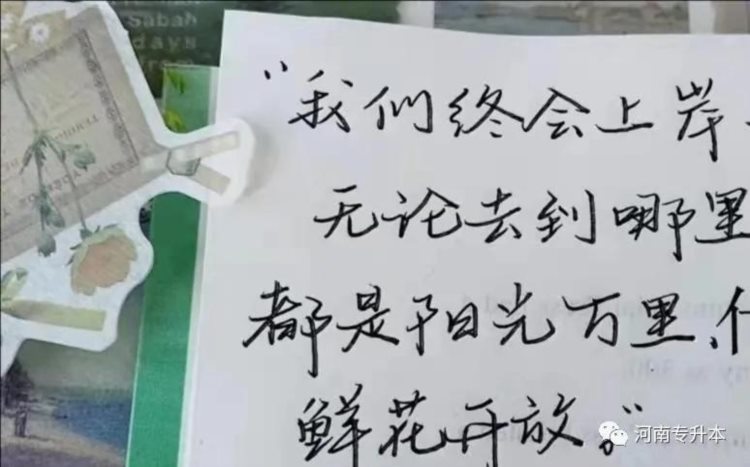 Sabah
days
from
“我们终会上岸
无论去到哪里
都是阳光万里、
鲜花开放。”
河南专升本